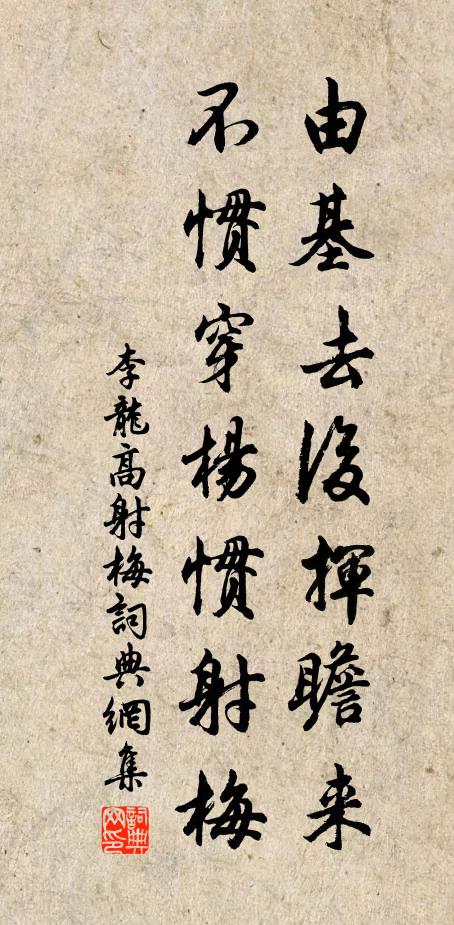 由基去後揮瞻来
不慣穿楊慣射梅
李龍高射梅詞典網集
詞典網印